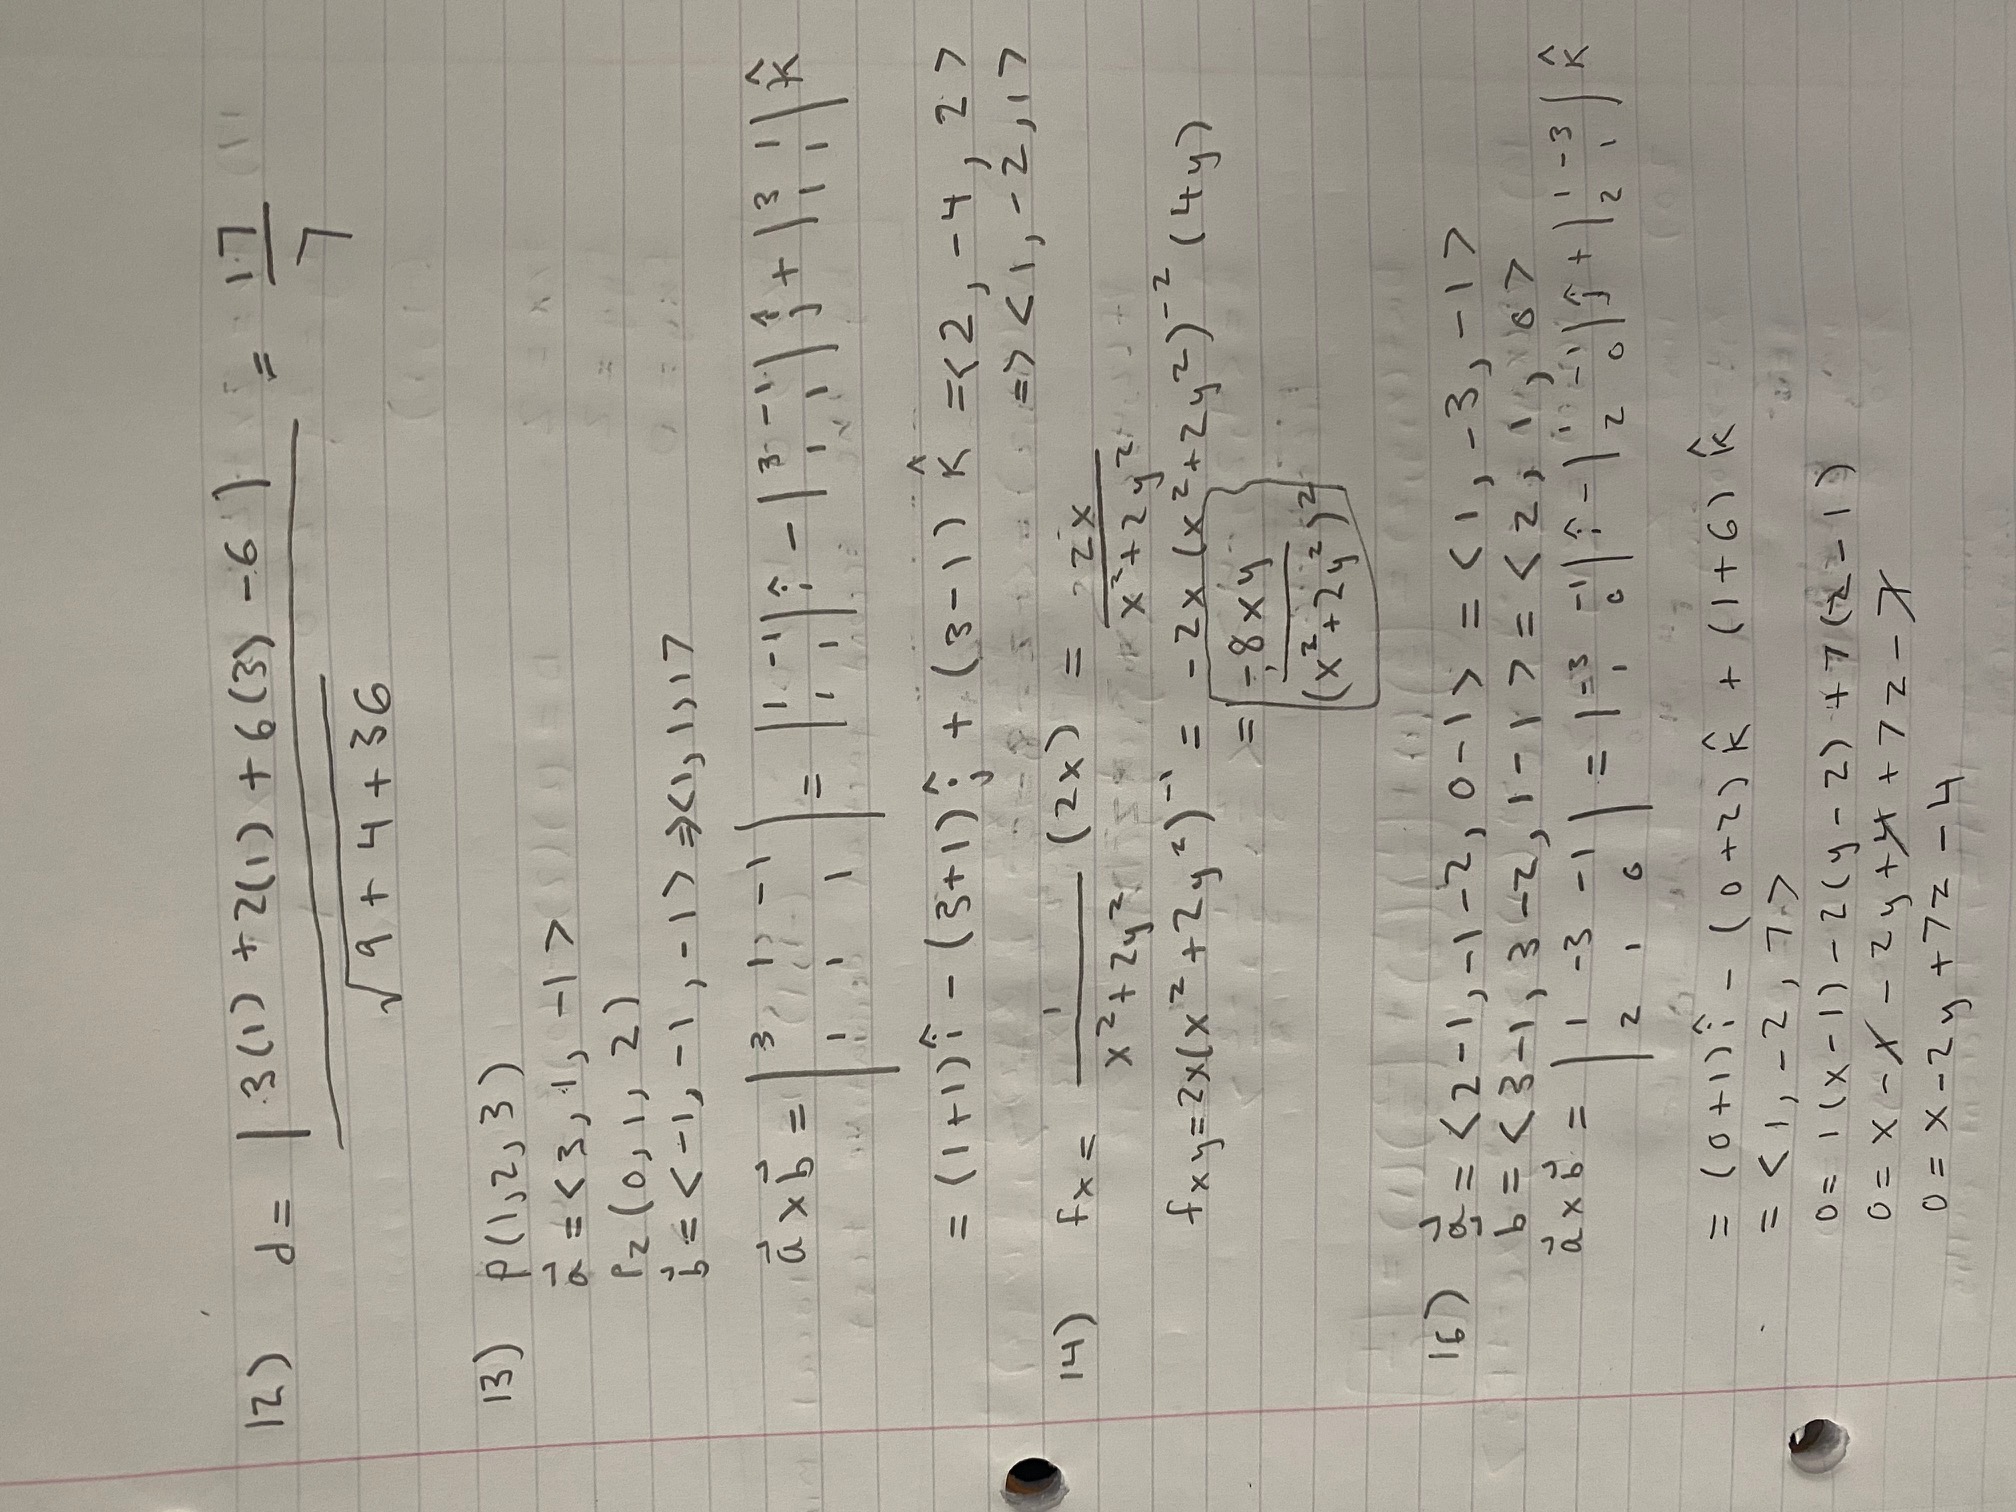 12) d = |3(1) + 2(1) + 6(3) - 6| / √(9 + 4 + 36) = 17/7
13) P(1,2,3)
a⃗ = <3, 1, -1>
P2(0, 1, 2)
b⃗ = <-1, -1, -1> ⇒ <1, 1, 1>
a⃗ x b⃗ = |3, 1, -1; 1 1 1| = |1 -1; 1 1| î - |3 -1; 1 1| ĵ + |3 1; 1 1| k̂
= (1+1) î - (3+1) ĵ + (3-1) k̂ = <2, -4, 2>
=> <1, -2, 1>
14) fx = 1/(x²+2y²) (2x) = 2x/(x²+2y²)
fxy = 2x(x²+2y²)⁻¹ = -2x(x²+2y²)⁻² (4y)
= -8xy/(x²+2y²)²
16) a⃗ = <2-1, -1-2, 0-1> = <1, -3, -1>
b⃗ = <3-1, 3-2, 1-1> = <2, 1, 0>
a⃗ x b⃗ = |1 -3 -1; 2 1 0| = |-3 -1; 1 0| î - |1 -1; 2 0| ĵ + |1 -3; 2 1| k̂
= (0+1) î - (0+2) k̂ + (1+6) k̂
= <1, -2, 7>
0 = 1(x-1) - 2(y-2) + 7(z-1)
0 = x - 1 - 2y + 4 + 7z - 7
0 = x - 2y + 7z - 4